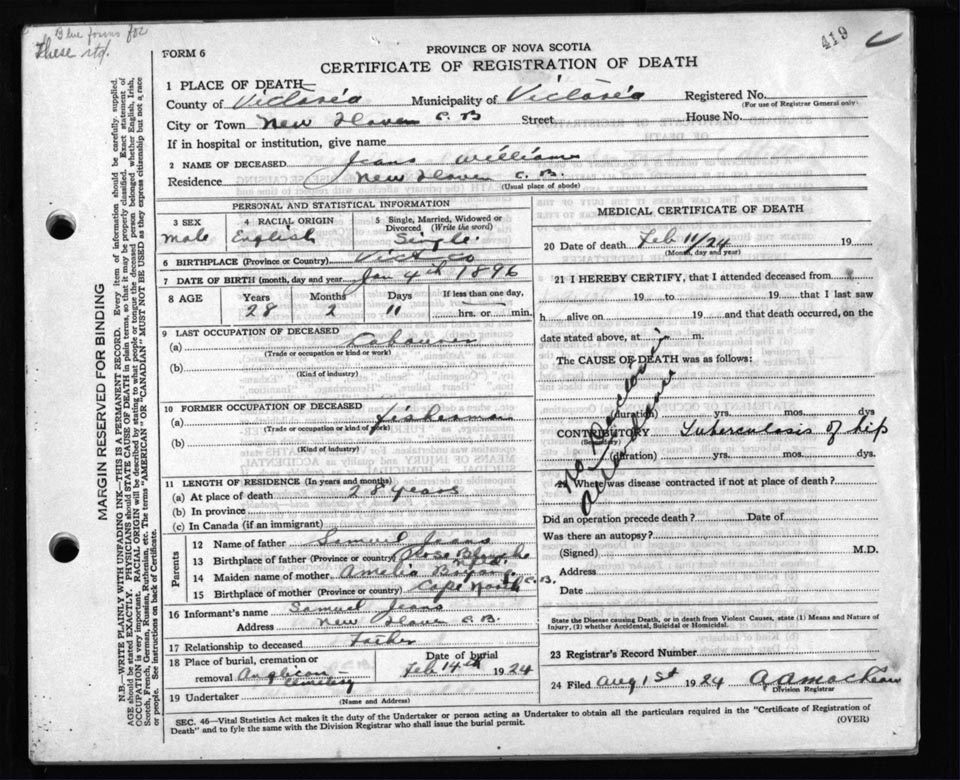 Blue forms for
These rtd.
419
FORM 6
PROVINCE OF NOVA SCOTIA
CERTIFICATE OF REGISTRATION OF DEATH
1 PLACE OF DEATH
County of Victoria Municipality of Victoria Registered No.
(For use of Registrar General only)
City or Town New Haven C.B Street House No.
If in hospital or institution, give name
2 NAME OF DECEASED Jeans William
Residence New Haven C.B.
(Usual place of abode)
PERSONAL AND STATISTICAL INFORMATION
3 SEX 4 RACIAL ORIGIN 5 Single, Married, Widowed or Divorced (Write the word)
Male English Single.
6 BIRTHPLACE (Province or Country) Vict Co
7 DATE OF BIRTH (month, day and year) Jan 4th 1896
8 AGE Years Months Days If less than one day,
28 2 11 hrs. or min.
9 LAST OCCUPATION OF DECEASED
(a) Labourer
(Trade or occupation or kind or work)
(b)
(Kind of industry)
10 FORMER OCCUPATION OF DECEASED
(a) fisherman
(Trade or occupation or kind of work)
(b)
(Kind of industry)
11 LENGTH OF RESIDENCE (In years and months)
(a) At place of death 28 years
(b) In province
(c) In Canada (if an immigrant)
Parents
12 Name of father Samuel Jeans
13 Birthplace of father (Province or country) Rose Blanche
Nfld.
14 Maiden name of mother Amelia
15 Birthplace of mother (Province or country) Cape North C.B.
16 Informant's name Samuel Jeans
Address New Haven C.B.
17 Relationship to deceased Father
18 Place of burial, cremation or removal Anglican Cemetery Date of burial Feb 14th 1924
19 Undertaker
(Name and Address)
MEDICAL CERTIFICATE OF DEATH
20 Date of death Feb 11/24 19
(Month, day and year)
21 I HEREBY CERTIFY, that I attended deceased from
19 to 19 that I last saw
h alive on 19 and that death occurred, on
date stated above, at m.
The CAUSE OF DEATH was as follows:
No Physician
Attendance
(duration) yrs. mos. dys
CONTRIBUTORY Tuberculosis of hip
(Secondary)
(duration) yrs. mos. dys.
22 Where was disease contracted if not at place of death?
Did an operation precede death? Date of
Was there an autopsy?
(Signed) M.D.
Address
Date
State the Disease causing Death, or in death from Violent Causes, state (1) Means and Nature of
Injury, (2) whether Accidental, Suicidal or Homicidal.
23 Registrar's Record Number
24 Filed Aug 1st 1924
Division Registrar
SEC. 46—Vital Statistics Act makes it the duty of the Undertaker or person acting as Undertaker to obtain all the particulars required in the "Certificate of Registration of
Death" and to fyle the same with the Division Registrar who shall issue the burial permit.
(OVER)
MARGIN RESERVED FOR BINDING
N.B.—WRITE PLAINLY WITH UNFADING INK—THIS IS A PERMANENT RECORD. Every item of information should be carefully supplied.
AGE should be stated EXACTLY. PHYSICIANS should STATE CAUSE OF DEATH in plain terms, so that it may be properly classified. Exact statement of
OCCUPATION is very important. RACIAL ORIGIN will be described by stating to what people or tongue the deceased person belonged whether English, Irish,
Scotch, French, German, Russian, Ruthenian, etc. The terms "AMERICAN" OR "CANADIAN" MUST NOT BE USED as they express citizenship but not a race
or people. See instructions on back of Certificate.